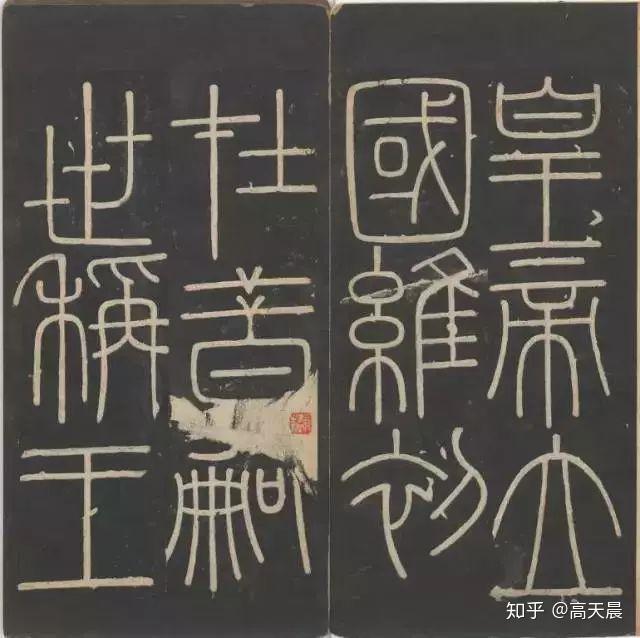 皇帝立
國維初
在昔嗣
世稱王
知乎 @高天晨